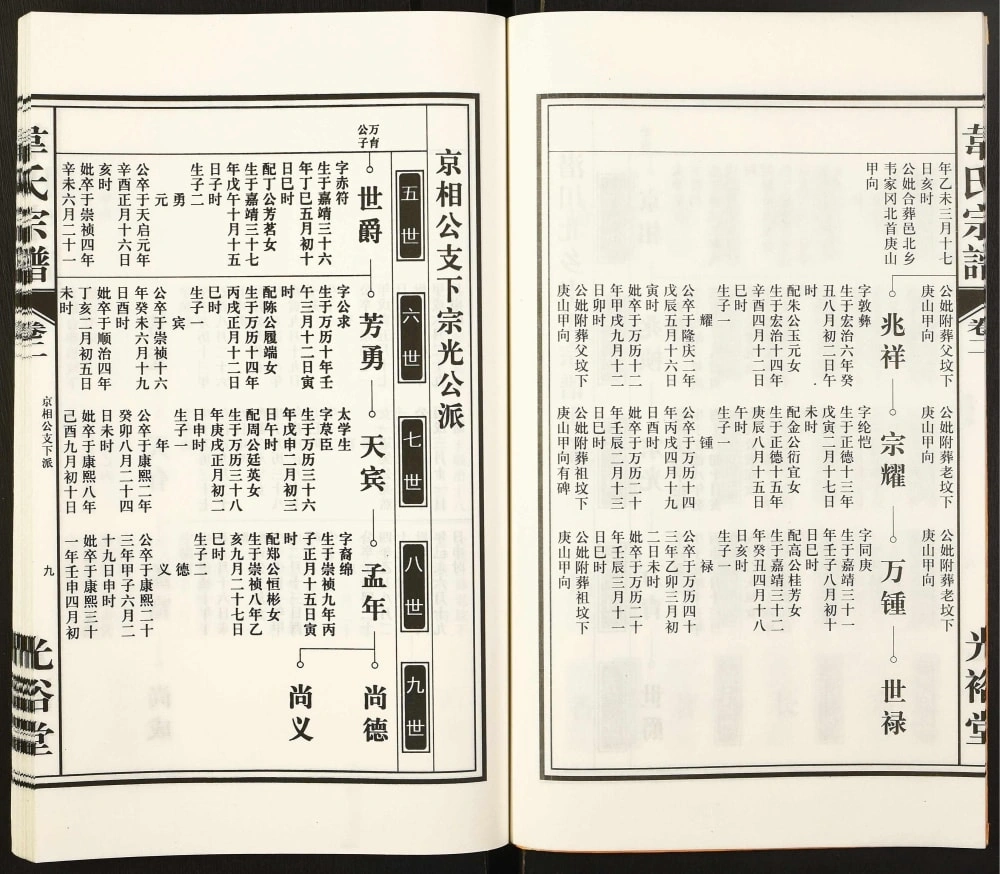 韋氏宗譜
卷二
光裕堂
年乙未三月十七
日亥时
公妣合葬邑北乡
韦家冈北首庚山
甲向
公妣附葬父坟下
庚山甲向
公妣附葬老坟下
庚山甲向
公妣附葬老坟下
庚山甲向
兆祥
宗耀
万锺
世禄
字敦彝
生于宏治六年癸
丑八月初二日午
时
配朱公玉元女
生于宏治十四年
辛酉四月十二日
巳时
生子一
耀
公卒于隆庆二年
戊辰五月十六日
寅时
妣卒于万历十二
年甲戌九月十二
日卯时
公妣附葬父坟下
庚山甲向
字纶恺
生于正德十三年
戊寅二月十七日
未时
配金公衍宜女
生于正德十五年
庚辰八月十五日
午时
生子一
锺
公卒于万历十四
年丙戌四月十九
日酉时
妣卒于万历二十
年壬辰二月十三
日巳时
公妣附葬祖坟下
庚山甲向有碑
字同庚
生于嘉靖三十一
年壬子八月初十
日巳时
配高公桂芳女
生于嘉靖三十二
年癸丑四月十八
日亥时
生子一
禄
公卒于万历四十
三年乙卯三月初
二日未时
妣卒于万历二十
年壬辰三月十一
日巳时
公妣附葬祖坟下
庚山甲向
京相公支下宗光公派
五世
六世
七世
八世
九世
万育
公子
世爵
芳勇
天宾
孟年
尚德
尚义
字赤符
生于嘉靖三十六
年丁巳五月初十
日巳时
配丁公芳茗女
生于嘉靖三十七
年戊午十月十五
日子时
生子二
勇
元
公卒于天启元年
辛酉正月十六日
亥时
妣卒于崇祯四年
辛未六月二十一
字公求
生于万历十年壬
午三月十二日寅
时
配陈公履端女
生于万历十四年
丙戌正月十二日
巳时
生子一
宾
公卒于崇祯十六
年癸未六月十九
日酉时
妣卒于顺治四年
丁亥二月初五日
未时
太学生
字荩臣
生于万历三十六
年戊申二月初三
日午时
配周公廷英女
生于万历三十八
年庚戌正月初二
日申时
生子一
年
公卒于康熙二年
癸卯八月二十四
日未时
妣卒于康熙八年
己酉九月初十日
字裔绵
生于崇祯九年丙
子正月十五日寅
时
配郑公恒彬女
生于崇祯八年乙
亥九月二十七日
巳时
生子二
德
义
公卒于康熙二十
三年甲子六月二
十九日申时
妣卒于康熙三十
一年壬申四月初
韋氏宗譜
卷二
京相公支下派
九
光裕堂